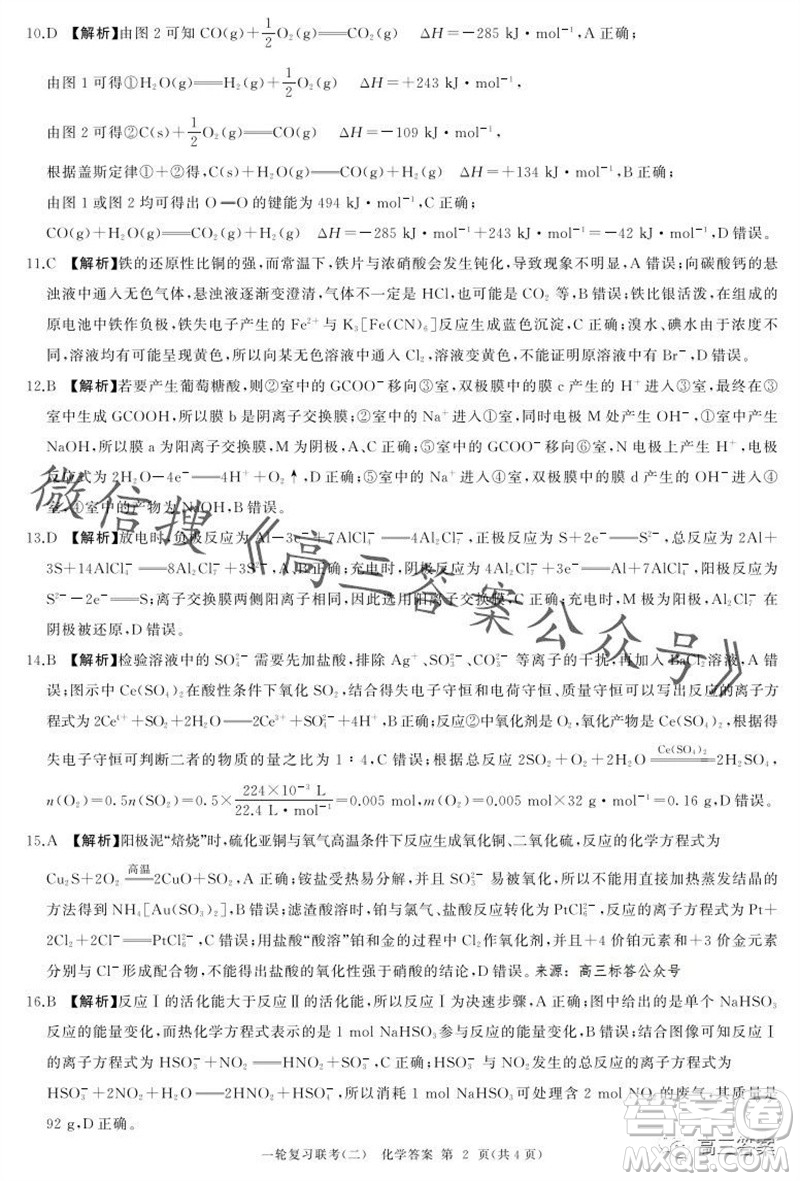 10.D 【解析】由图2可知CO(g)+1/2O₂(g)══CO₂(g) ΔH=−285 kJ·mol⁻¹,A正确;
由图1可得①H₂O(g)══H₂(g)+1/2O₂(g) ΔH=+243 kJ·mol⁻¹,
由图2可得②C(s)+1/2O₂(g)══CO(g) ΔH=−109 kJ·mol⁻¹,
根据盖斯定律①+②得,C(s)+H₂O(g)══CO(g)+H₂(g) ΔH=+134 kJ·mol⁻¹,B正确;
由图1或图2均可得出O═O的键能为494 kJ·mol⁻¹,C正确;
CO(g)+H₂O(g)══CO₂(g)+H₂(g) ΔH=−285 kJ·mol⁻¹+243 kJ·mol⁻¹=−42 kJ·mol⁻¹,D错误。
11.C 【解析】铁的还原性比铜的强,而常温下,铁片与浓硝酸会发生钝化,导致现象不明显,A错误;向碳酸钙的悬
浊液中通入无色气体,悬浊液逐渐变澄清,气体不一定是HCl,也可能是CO₂等,B错误;铁比银活泼,在组成的
原电池中铁作负极,铁失电子产生的Fe²⁺与K₃[Fe(CN)₆]反应生成蓝色沉淀,C正确;溴水、碘水由于浓度不
同,溶液均有可能呈现黄色,所以向某无色溶液中通入Cl₂,溶液变成黄色,不能说明原溶液中含有Br⁻,D错误。
12.B 【解析】若要产生葡萄糖酸,则②室中的GCOO⁻移向③室,双极膜中的膜c产生的H⁺进入③室,最终在③
室中生成GCOOH,所以膜b是阴离子交换膜;②室中的Na⁺进入①室,同时电极M处产生OH⁻,①室中产生
NaOH,所以膜a为阳离子交换膜,M为阴极,A、C正确;②室中的GCOO⁻移向⑥室,N电极上产生H⁺,电极
反应式为2H₂O−4e⁻══4H⁺+O₂↑,D正确;⑤室中的Na⁺进入④室,双极膜中的膜d产生的OH⁻进入④
室,④室中的产物为NaOH,B错误。
13.D 【解析】放电时,负极反应为Al−3e⁻+7AlCl₄⁻══4Al₂Cl₇⁻,正极反应为S+2e⁻══S²⁻,总反应为2Al+
3S+14AlCl₄⁻══8Al₂Cl₇⁻+3S²⁻,A、C正确;充电时,M极为阳极,阳极反应为
S²⁻−2e⁻══S;离子交换膜两侧阳离子相同,因此选用阳离子交换膜,B正确;充电时,M为阳极,Al₂Cl₇⁻在
阴极被还原,D错误。
14.B 【解析】检验溶液中的SO₄²⁻需要先加盐酸,排除Ag⁺、SO₃²⁻、CO₃²⁻等离子的干扰,再加入BaCl₂溶液,A错
误;图示中Ce(SO₄)₂在酸性条件下氧化SO₂,结合得失电子守恒和电荷守恒、质量守恒,反应的离子方
程式为2Ce⁴⁺+SO₂+2H₂O══2Ce³⁺+SO₄²⁻+4H⁺,B正确;氧化剂是O₂,氧化产物是Ce(SO₄)₂,根据得
失电子守恒可判断二者的物质的量之比为1∶4,C错误;根据总反应2SO₂+O₂+2H₂O══(Ce(SO₄)₂)2H₂SO₄,
n(O₂)=0.5n(SO₂)=0.5×(224×10⁻³ L)/(22.4 L·mol⁻¹)=0.005 mol,m(O₂)=0.005 mol×32 g·mol⁻¹=0.16 g,D错误。
15.A 【解析】阳极泥“焙烧”时,硫化亚铜与氧气高温条件下反应生成氧化铜、二氧化硫,反应的化学方程式为
Cu₂S+2O₂══(高温)2CuO+SO₂,A正确;铵盐受热易分解,且SO₃²⁻易被氧化,所以不可能用加热蒸发结晶的
方法得到NH₄[Au(SO₃)₂],B错误;滤渣酸溶时,铂与氯气、盐酸反应转化为PtCl₆²⁻,反应的离子方程式为Pt+
2Cl₂+2Cl⁻══PtCl₆²⁻,C错误;用盐酸“酸溶”铂和金的过程中Cl₂作氧化剂,并且+4价铂元素和+3价金元素
分别与Cl⁻形成了配离子,不能得出盐酸的氧化性大于硝酸的结论,D错误。来源:高三标答公众号
16.B 【解析】反应Ⅰ的活化能大于反应Ⅱ的活化能,所以反应Ⅰ为决速步骤,A正确;图中是以单个NaHSO₃
反应的能量变化,而热化学方程式表示的是1 mol NaHSO₃参与反应的能量变化,B错误;结合图像可知反应Ⅰ
的离子方程式为HSO₃⁻+NO₂══HSO₃+NO₂⁻,C正确;总反应的离子方程式为
HSO₃⁻+2NO₂+H₂O══HSO₄⁻+2HNO₂,所以消耗1 mol NaHSO₃可处理含2 mol NO₂的废气,其质量是
92 g,D正确。
一轮复习联考(二) 化学答案 第2页(共4页)
微信搜《高三答案公众号》
答案圈
高三答案